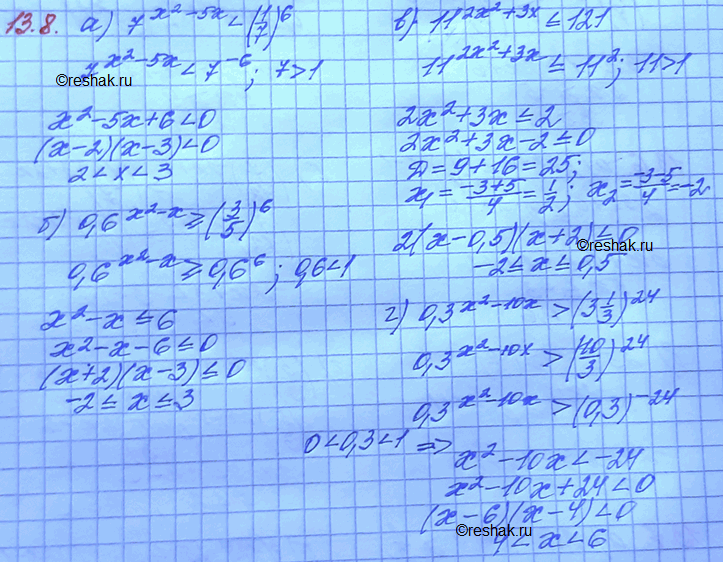 13.8. а) 7^{x²-5x} < (1/7)^6
7^{x²-5x} < 7^{-6}; 7>1
©reshak.ru
x²-5x+6<0
(x-2)(x-3)<0
2<x<3
б) 0,6^{x²-x} ≥ (3/5)^6
0,6^{x²-x} ≥ 0,6^6; 0,6<1
x²-x≤6
x²-x-6≤0
(x+2)(x-3)≤0
-2≤x≤3
в) 11^{2x²+3x} ≤ 121
11^{2x²+3x} ≤ 11²; 11>1
2x²+3x≤2
2x²+3x-2≤0
Д=9+16=25;
x₁=(-3+5)/4=1/2; x₂=(-3-5)/4=-2
2(x-0,5)(x+2)≤0
©reshak.ru
-2≤x≤0,5
г) 0,3^{x²-10x} > (3 1/3)^{24}
0,3^{x²-10x} > (10/3)^{24}
0,3^{x²-10x} > (0,3)^{-24}
0<0,3<1 ⇒
x²-10x<-24
x²-10x+24<0
(x-6)(x-4)<0
©reshak.ru
4<x<6